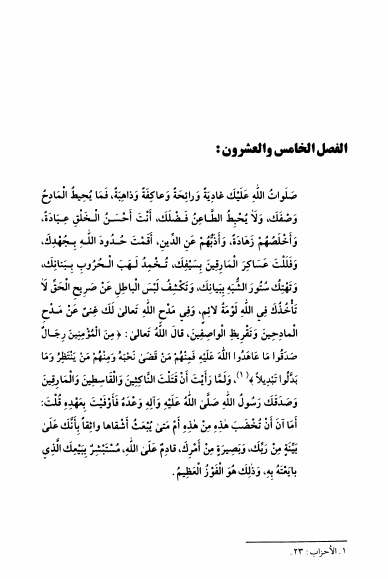 الفصل الخامس والعشرون :
صَلَواتُ اللهِ عَلَيْكَ غادِيَةً وَرائِحَةً وَعاكِفَةً وَذاهِبَةً، فَمَا يُحِيطُ الْمَادِحُ
وَصْفَكَ، وَلاَ يُحْبِطُ الطَّاعِنُ فَضْلَكَ، أَنْتَ أَحْسَنُ الْخَلْقِ عِبـادَةً،
وَأَخْلَصُهُمْ زَهَادَةً، وَأَذَبُّهُمْ عَنِ الدِّينِ، أَقَمْتَ حُدُودَ اللهِ بِجُهْدِكَ،
وَفَلَلْتَ عَسَاكِرَ الْمَارِقِينَ بِسَيْفِكَ، تُخْمِدُ لَهَبَ الْحُرُوبِ بِبَنانِكَ،
وَتَهْتِكُ سُتُورَ الشُّبَهِ بِبَيانِكَ، وَتَكْشِفُ لَبْسَ الْباطِلِ عَنْ صَرِيحِ الْحَقِّ لاَ
تَأْخُذُكَ فِي اللهِ لَوْمَةُ لائِمٍ، وَفِي مَدْحِ اللهِ تَعالىٰ لَكَ غِنىً عَنْ مَدْحِ
الْمادِحِينَ وَتَقْرِيظِ الْواصِفِينَ، قالَ اللهُ تَعالىٰ: ﴿ مِنَ الْمُؤْمِنِينَ رِجَالٌ
صَدَقُوا مَا عَاهَدُوا اللهَ عَلَيْهِ فَمِنْهُمْ مَنْ قَضَىٰ نَحْبَهُ وَمِنْهُمْ مَنْ يَنْتَظِرُ وَمَا
بَدَّلُوا تَبْدِيلاً ﴾(١)، وَلَمَّا رَأَيْتَ أَنْ قَتَلْتَ النَّاكِثِينَ وَالْقَاسِطِينَ وَالْمَارِقِينَ
وَصَدَقَكَ رَسُولُ اللهِ صَلَّىٰ اللهُ عَلَيْهِ وَآلِهِ وَعْدَهُ فَأَوْفَيْتَ بِعَهْدِهِ قُلْتَ:
أَمَا آنَ أَنْ تُخْضَبَ هٰذِهِ مِنْ هٰذِهِ أَمْ مَتىٰ يُبْعَثُ أَشْقاها واثِقاً بِأَنَّكَ عَلىٰ
بَيِّنَةٍ مِنْ رَبِّكَ، وَبَصِيرَةٍ مِنْ أَمْرِكَ، قادِمٌ عَلىٰ اللهِ، مُسْتَبْشِرٌ بِبَيْعِكَ الَّذِي
بايَعْتَهُ بِهِ، وَذٰلِكَ هُوَ الْفَوْزُ الْعَظِيمُ.
١. الأحزاب : ٢٣.